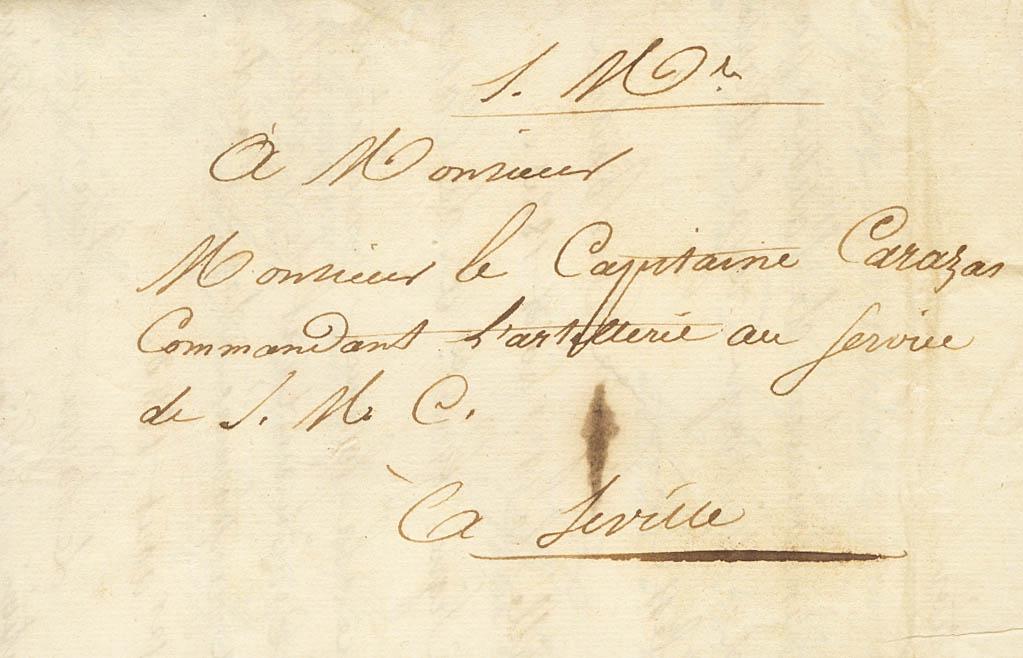 S. Mre
À Monsieur
Monsieur le Capitaine Carazas
Commandant L'artillerie au Service
de S. M. C.
à Seville